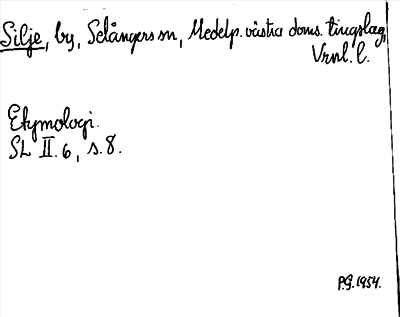 Silje, by, Selångers sn, Medelp. västra doms. tingslag,
Vrnl. l.
Etymologi.
SL II. 6, s. 8.
P.G. 1954.